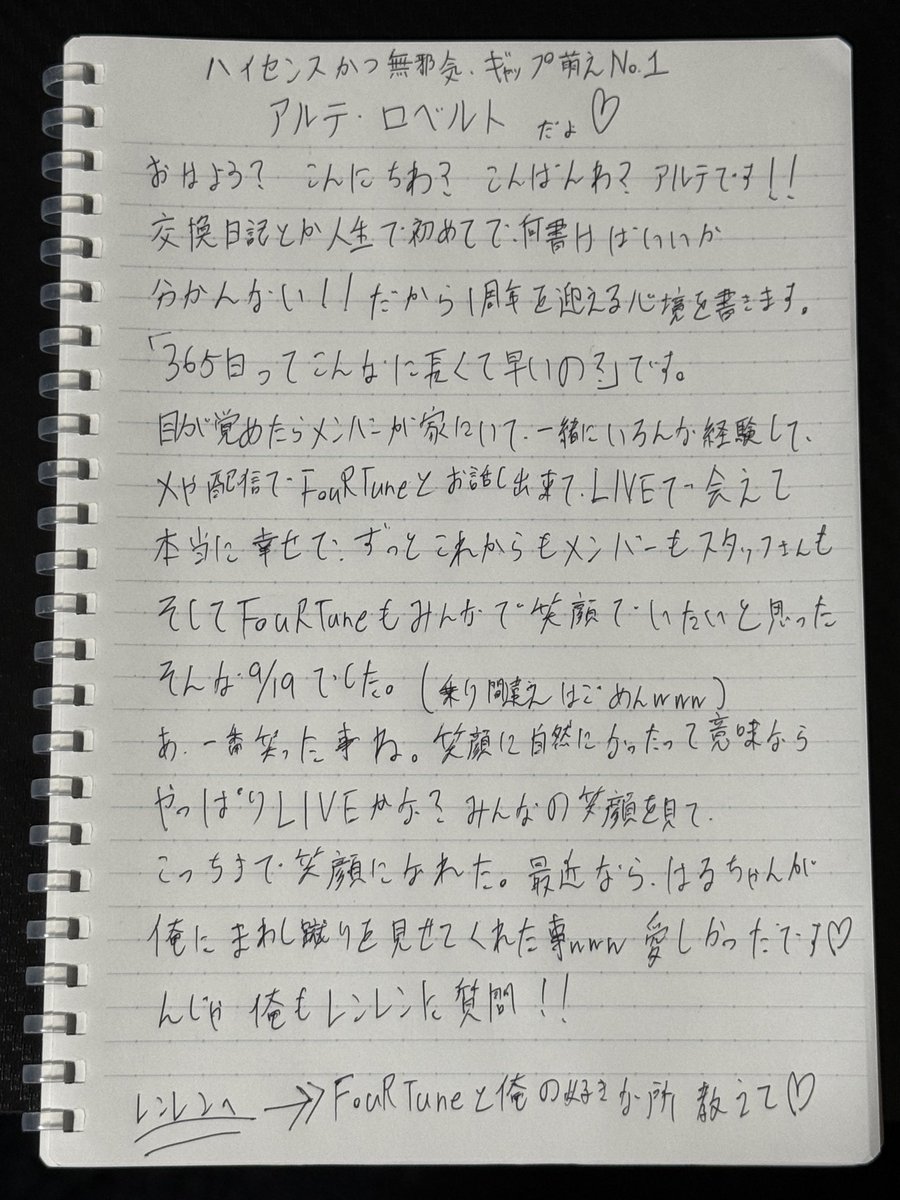 ハイセンスかつ無邪気、ギャップ萌えNo.1
アルテ・ロベルト だよ♡
おはよう? こんにちわ? こんばんわ? アルテです!!
交換日記とか人生で初めてで、何書けばいいか
分かんない!!だから1周年を迎える心境を書きます。
「365日ってこんなに長くて早いの?」です。
目が覚めたらメンバーが家にいて、一緒にいろんな経験して、
Xや配信でFouRTuneとお話し出来て、LIVEで会えて
本当に幸せで、ずっとこれからもメンバーもスタッフさんも
そしてFouRTuneもみんなで笑顔でいたいと思った
そんな9/19でした。(乗り間違えはごめんwww)
あ、一番笑った事ね。笑顔に自然になったって意味なら
やっぱりLIVEかな?みんなの笑顔を見て、
こっちまで笑顔になれた。最近なら、はるちゃんが
俺にまわし蹴りを見せてくれた事www 愛しかっだです♡
んじゃ 俺もレンレンに質問!!
レンレンへ →≫ FouRTuneと俺の好きな所 教えて♡